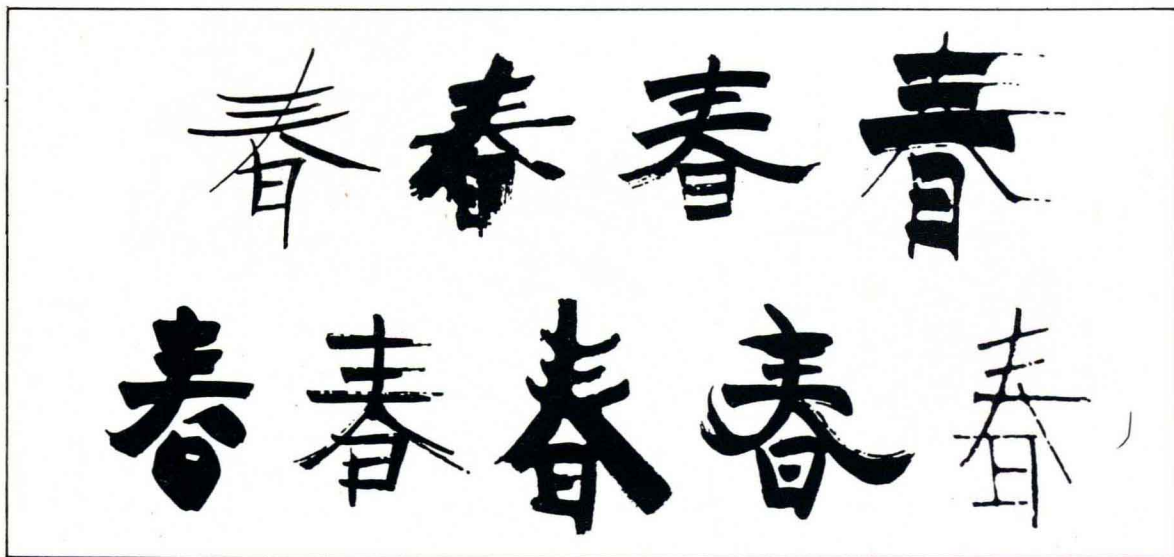 春春春春
春春春春春